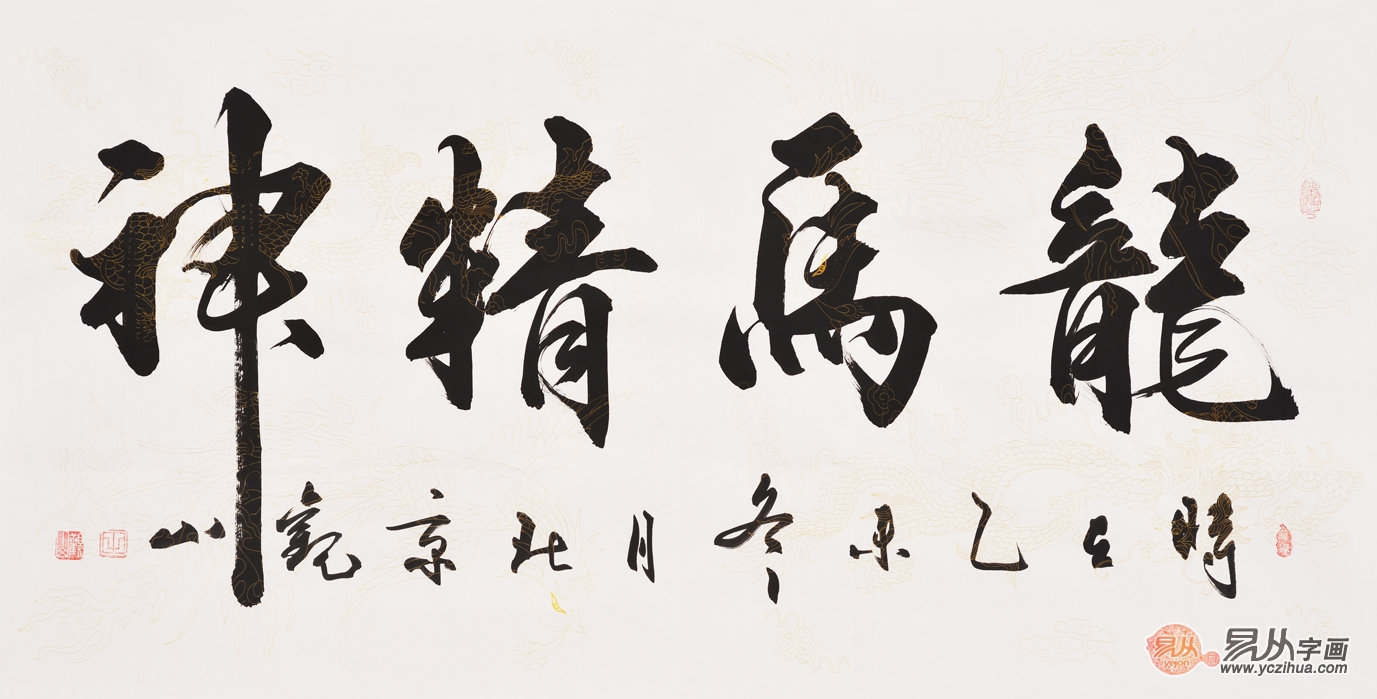 龍馬精神
時在乙未冬月北京觀山
易从
易从字画
www.yczihua.com